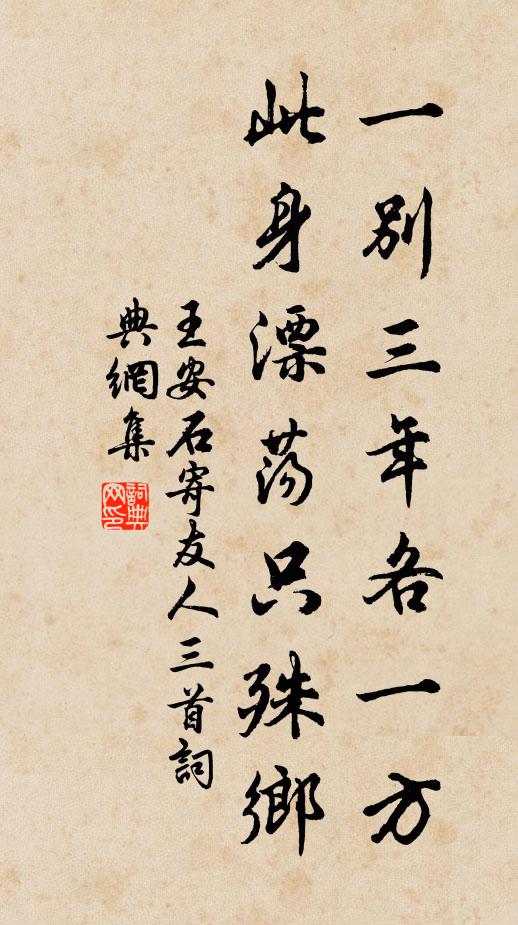 一別三年各一方
此身漂蕩只殊鄉
王安石寄友人三首詞
典網集
詞典网印